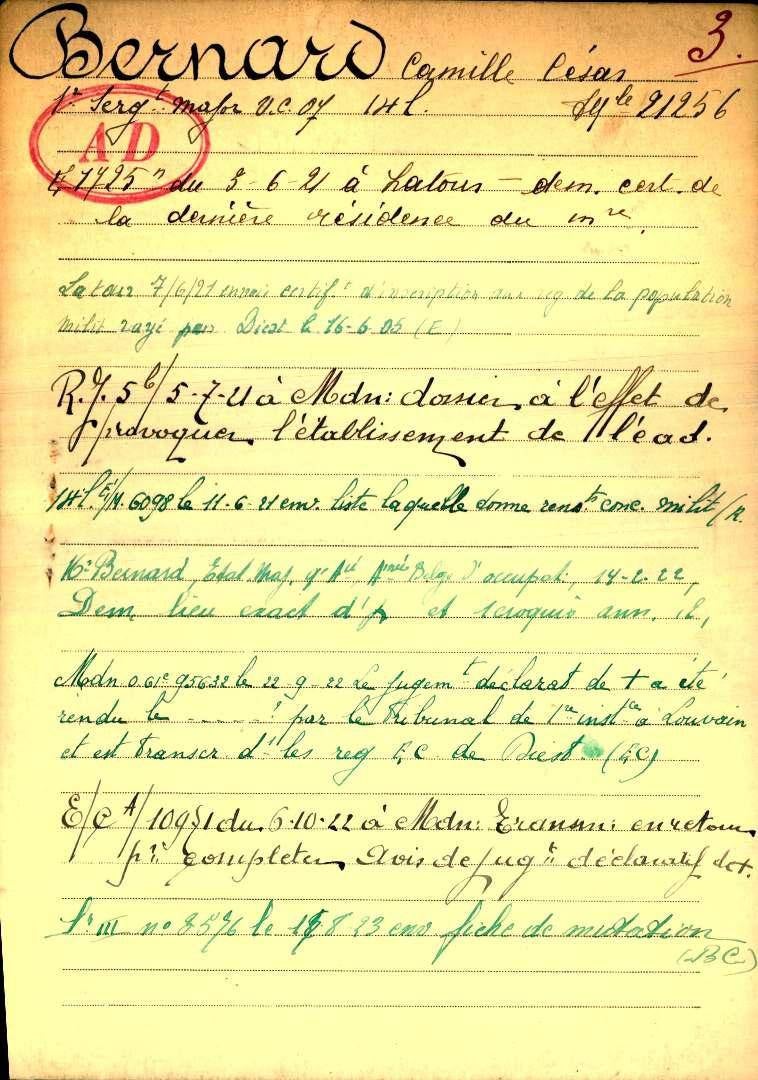 Bernard Camille César 3.
1r Sergt Major V.C. 07 14 l. 21256
AD
du 3-6-21 à Latour - dem. cert. de
la dernière résidence du mre
Latour 7/6/21 envoie certift d'inscription aux reg de la population
milit rayé pour Diest le 16-6-05 (E)
5-7-21 à Mdn: dossier à l'effet de
provoquer l'établissement de l'éad.
14 l. 6098 le 11-6-21 env. liste laquelle donne rensts conc. milit/R.
Bernard, Etat Maj. Armée Belge d'occupat, 14-2-22,
Dem lieu exact d' et 1 croquis ann.
Mdn 95632 le 22-9-22 Le jugemt déclarat de + a été
rendu le - - - - ? par le Tribunal de 1re instce à Louvain
et est transcr d' les reg E,C de Diest. (E,C)
E/C A/10971 du 6-10-22 à Mdn: Transm: en retour
pr compléter Avis de jugt déclaratif de +.
III no 8576 le 8 23 env fiche de mutation
(BC)